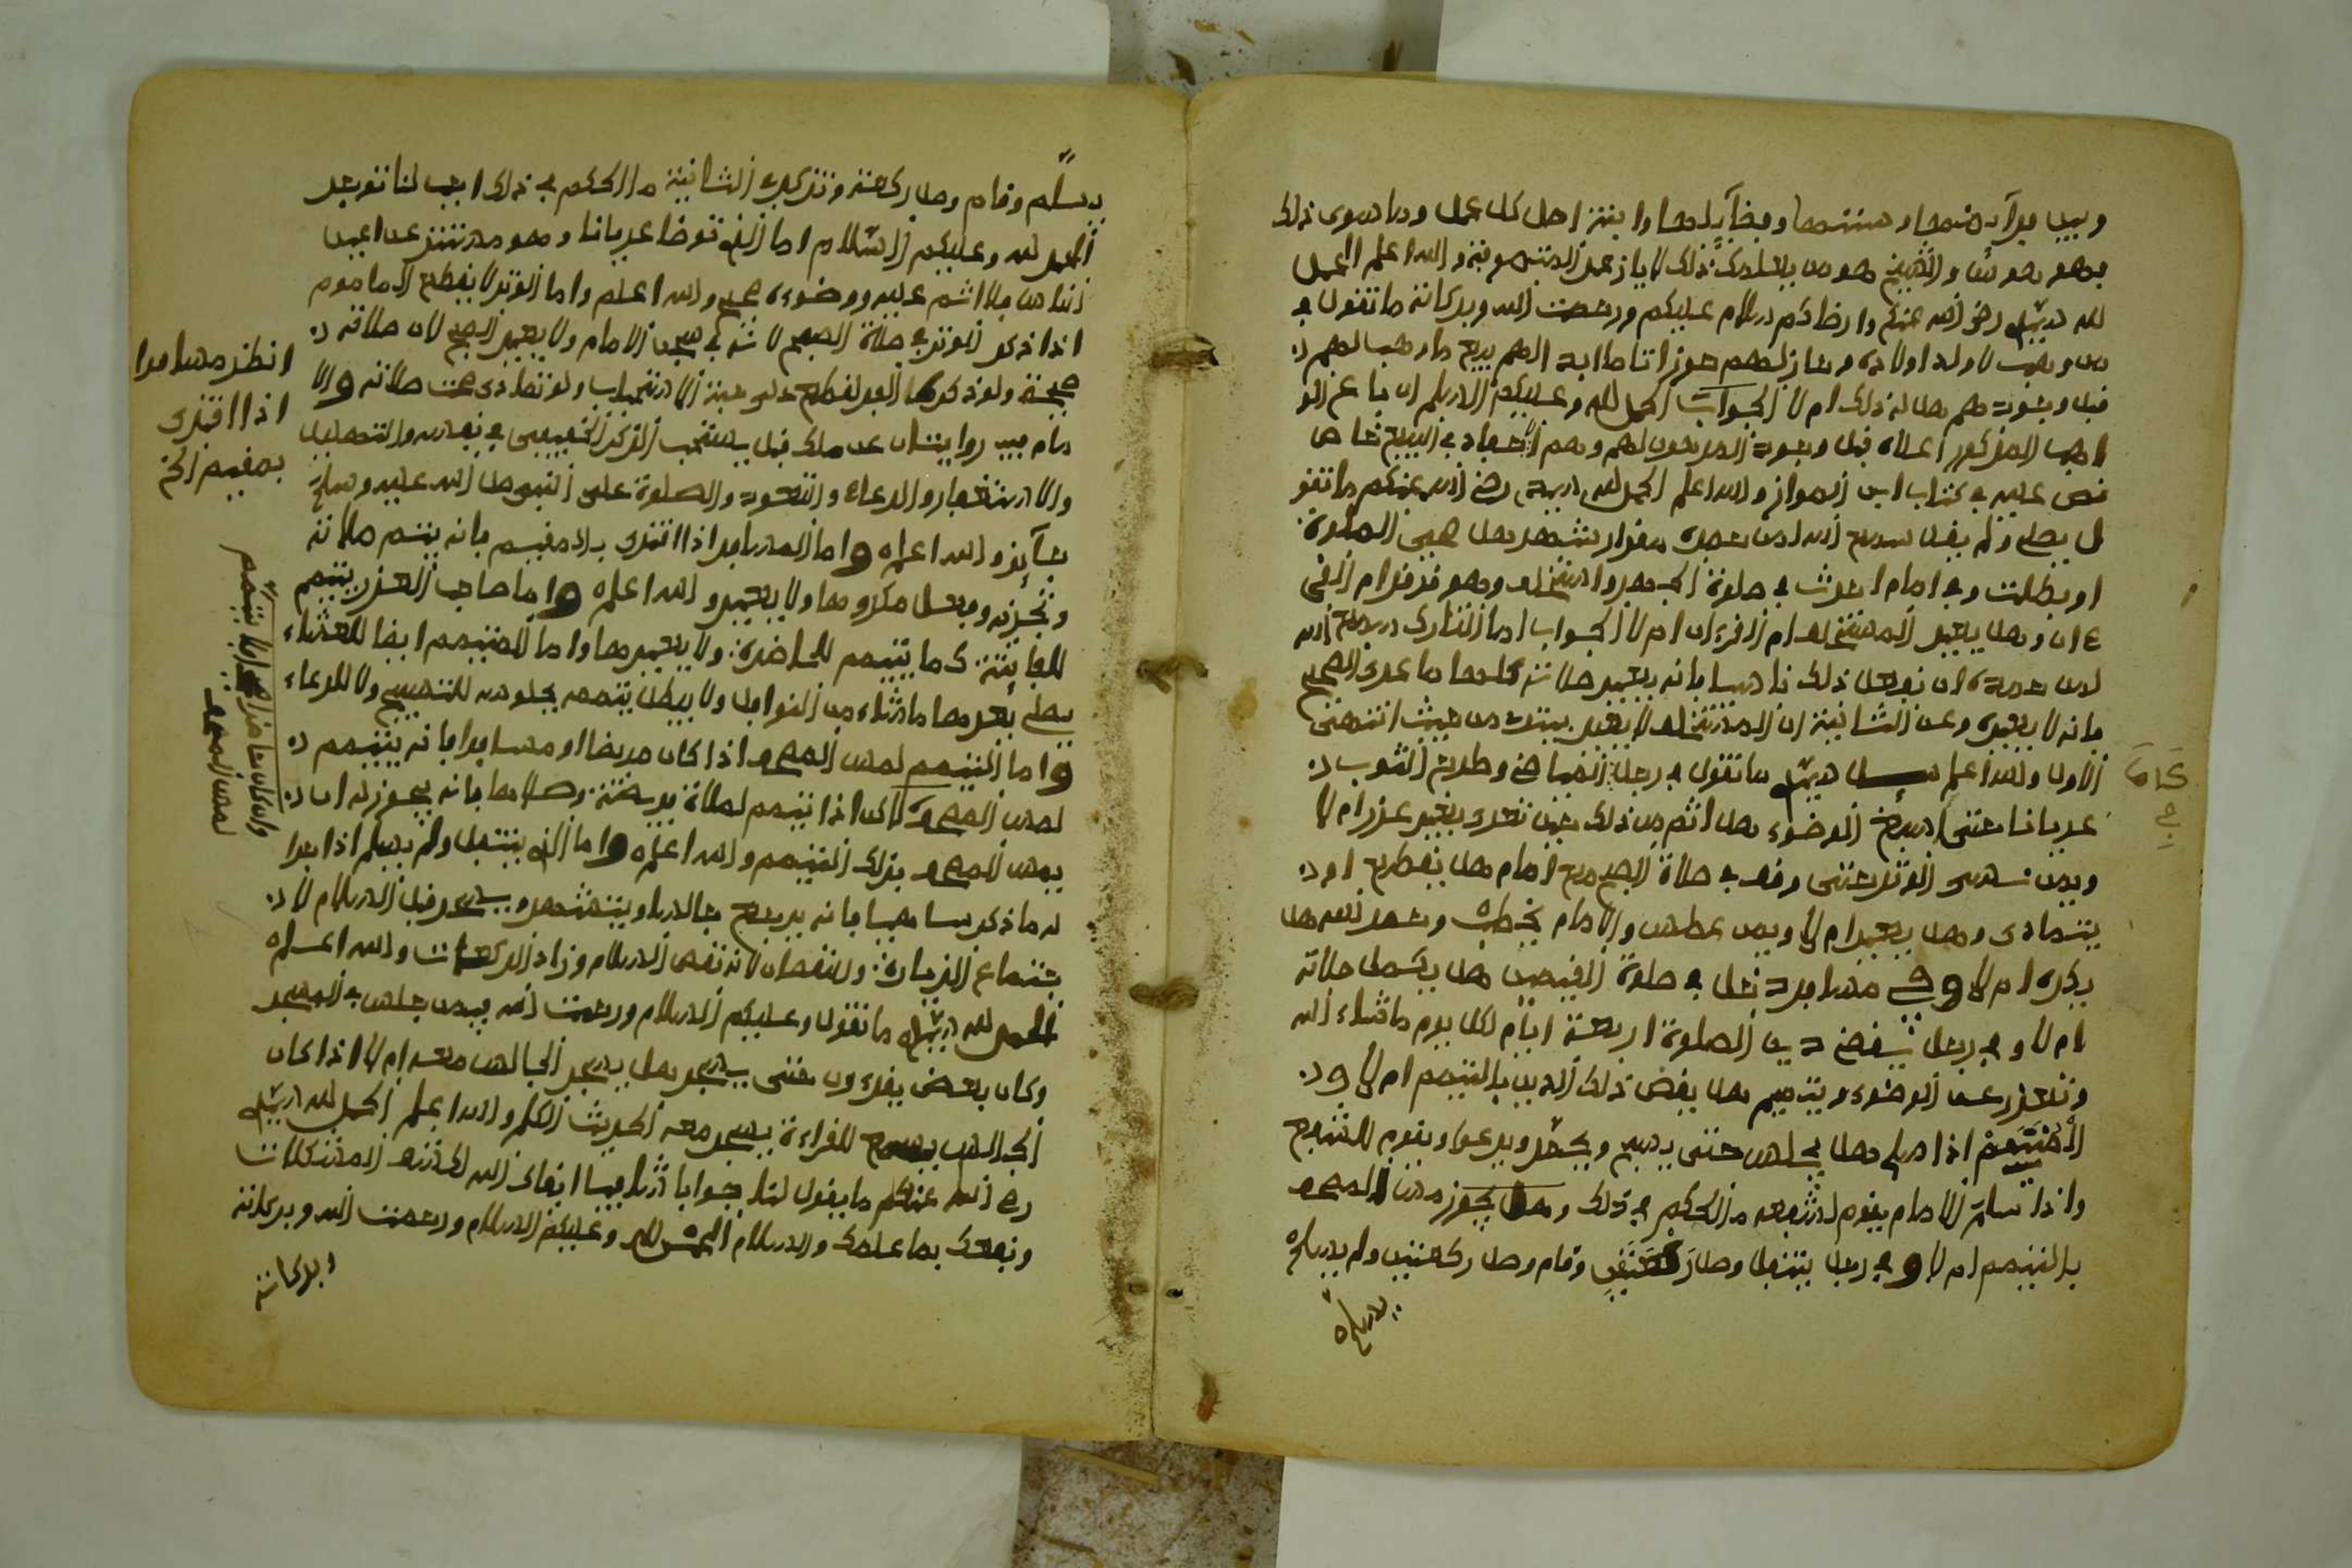 وبين فرآئضها وسننها وفضآئلها والنية اصل كل عمل وما سوى ذلك
فهو هوسا والشيخ هو من يسلك ذلك لا يا زعم المتصوفة والله اعلم الحمد
لله سيدي رضي الله عنكم وارضاكم سلام عليكم ورحمت الله وبركاته ما تقول في
من وهب لاولد اولاده وحاز لهم حوزا تاما ابد الهم يرجع ما وهب لهم
قبل وجود هم هل له ذلك ام لا الجواب الحمد لله وعليكم السلام ان باع الو
اهب المذكور اعلاه قبل وجود الموهوب لهم وهم الاحفاد فالبيع ماض
نص عليه في كتاب ابن المواز والله اعلم الحمد لله سيدي رضي الله عنكم ما تقو
ل يصلي ولم يقل سمع الله لمن حمده مقدار تشهد هل هي الصلوة
او بطلت وفي امام احدث في صلوة الجهر واستخلف وهو قد قرا ام القر
ءان وهل يعيد المستخلف ام القرءان ام لا الجواب اما التارك سمع الله
لمن حمده ان فعل ذلك ناسيا فانه يعيد صلاته كلها ما عدى الصبح
فانه لا يعيده وعن الثانية ان المستخلف لا يعيد يبتدئ من حيث انتهى
الاول والله اعلم سيدي ما تقول في رجل توضا في وطرح الثوب
عريانا حتى اسبغ الوضوء هل اثم من ذلك حين تعرى بغير عذر ام لا
وبمن نسي الوتر حتى وقف في صلاة الصبح مع امام هل يقطع او
يتمادى وهل يعيد ام لا وبمن عطس والامام يخطب وحمد الله هل
يكره ام لا وفي مسافر دخل في صلوة المقيمين هل يكمل صلاته
ام لا وفي رجل يقضي دين الصلوة اربعة ايام لكل يوم ما شاء الله
وتعذر عن الوضوء وتيمم هل يقض ذلك الدين بالتيمم ام لا و
المتيمم اذا صلى هل يجلس حتى يسبح ويحمد ويدعوا ويقوم للشفع
واذا سلم الامام يقوم لشفعه ما الحكم في ذلك وهل يجوز مس المصحف
بالتيمم ام لا وفي رجل يتنفل وصل ركعتين وقام وصل ركعتين ولم يسلم
يسلم
يسلم وقام وصل ركعة وتذكر في الثانية ما الحكم في ذلك اجب لنا توجر
الحمد لله وعليكم السلام اما الذي توضا عريانا وهو مستتر عن اعين
الناس فلا اثم عليه ووضوءه صحيح والله اعلم واما الوتر لا يقطع الماموم
اذا ذكر الوتر في صلاة الصبح لانه في سجن الامام ولا يعيد الصبح لان صلاته
صحيحة ولو ذكرها الفذ لقطع على جهة الاستحباب ولو تمادى صحت صلاته والا
مام فيه روايتان عن ملك قيل يستحب الذكر الخفيف في نفسه والتهليل
والاستغفار والدعاء والتعوذ والصلوة على النبي صلى الله عليه وسلم
جآئز والله اعلم واما المسافر اذا اقتدى بالمقيم فانه يتم صلاته
وتجزه وفعل مكروها ولا يعيد والله اعلم واما صاحب العذر يتيمم
للفائتة كما يتيمم للحاضرة ولا يعيدها واما المتيمم ايضا للعشاء
يصلي بعدها ما شاء من النوافل ولا يبطل تيممه بجلوسه للتسبيح ولا للدعاء
واما التيمم لمس المصحف اذا كان مريضا او مسافرا فانه يتيمم
لمس المصحف كالى اذا تيمم لصلاة فريضة وصلاها فانه يجوز له ان
يمس المصحف بذلك التيمم والله اعلم واما الذي يتنفل ولم يسلم اذا
له ما ذكر ساهيا فانه يرجع جالسا ويتشهد ويسجد قبل السلام لا
جتماع الزيادة والنقصان لانه نقص السلام وزاد الركعات والله اعلم
الحمد لله سيدي ما تقول وعليكم السلام ورحمت الله فيمن جلس في المسجد
وكان بعض يقرءون حتى يسجد هل يسجد الجالس معه ام لا اذا كان
الجالس يسمع للقراءة يسجد معه الحديث الكل والله اعلم الحمد لله سيدي
رضي الله عنكم ما يقول لنا جوابا شافيا ابقاك الله لكشف المشكلات
ونفعك بما علمك والسلام الحمد لله وعليكم السلام ورحمت الله وبركاته
وبركاته
انظر مسافرا
اذا اقتدى
بمقيم الخ
وان كان حاضرا صحيحا فلا يتيمم
لمس المصحف